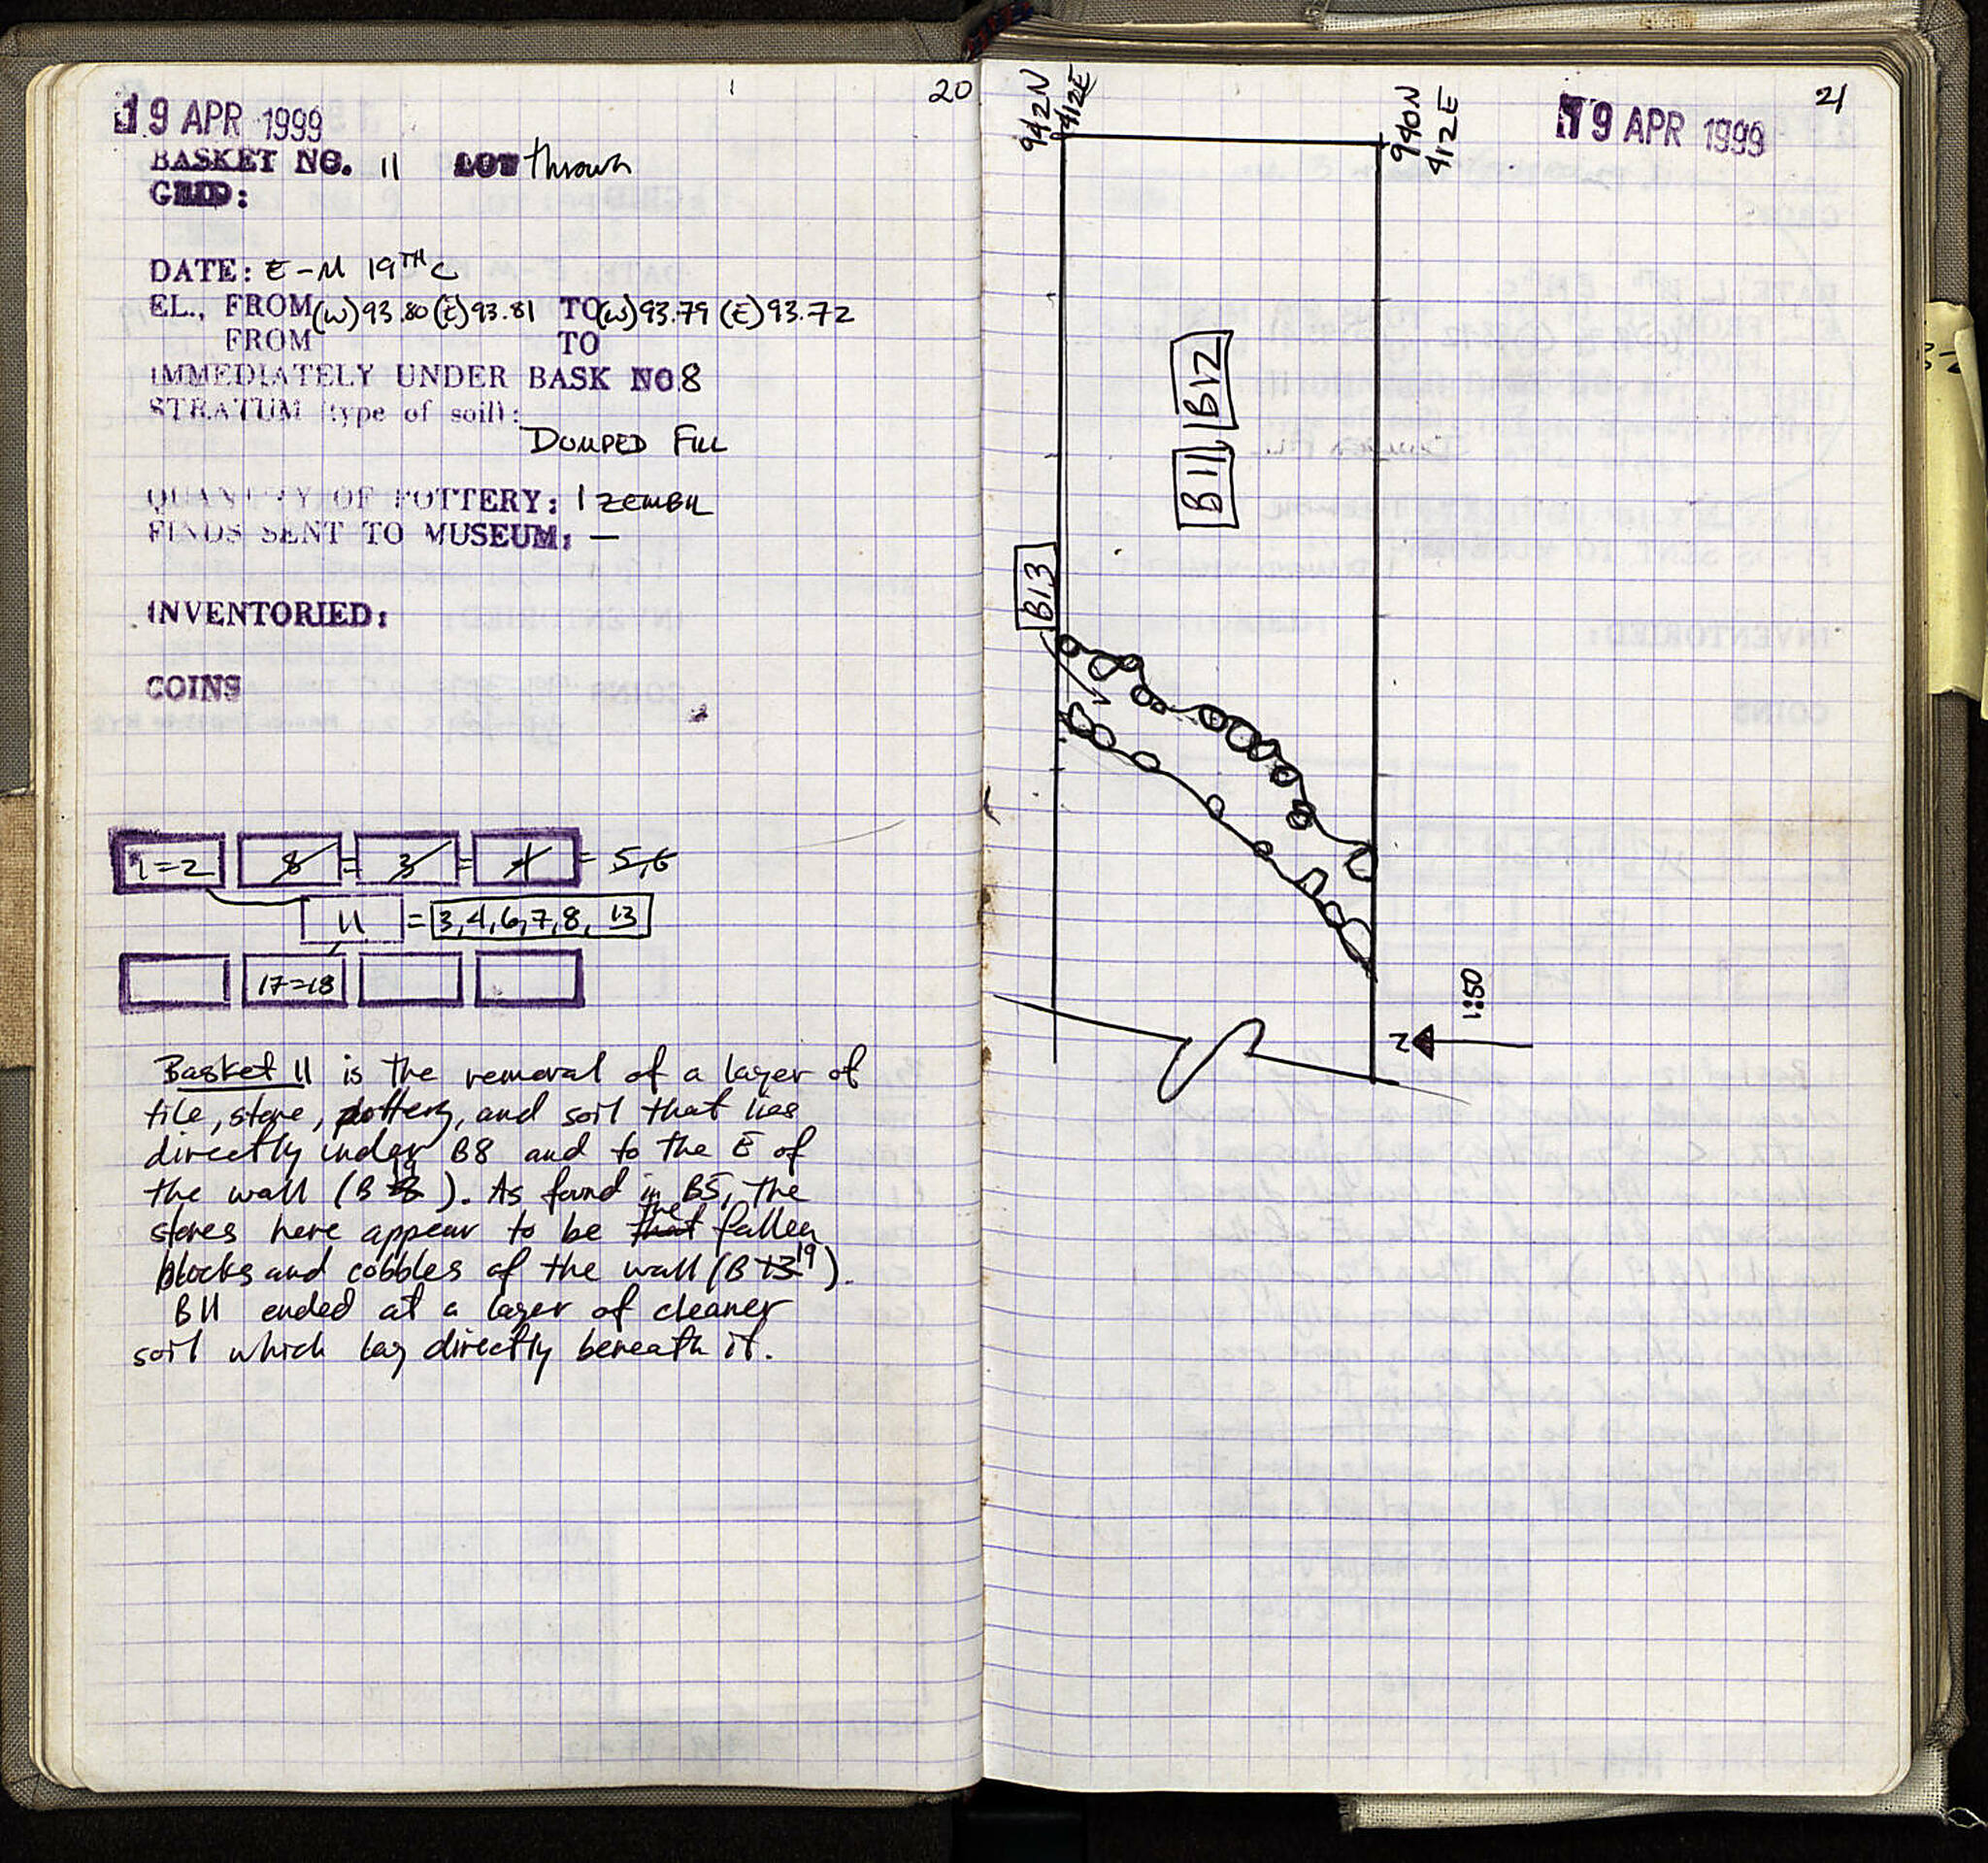 20
19 APR 1999
BASKET NO. 11 LOT thrown
GRID:
DATE: E-M 19TH C
EL., FROM (W)93.80(E)93.81 TO (W)93.79 (E)93.72
FROM TO
IMMEDIATELY UNDER BASK NO 8
STRATUM (type of soil):
DUMPED FILL
QUANTITY OF POTTERY: 1 ZEMBIL
FINDS SENT TO MUSEUM: —
INVENTORIED:
COINS
1=2 8 = 3 = 4 = 5,6
11 = 3,4,6,7,8, 13
17=18
Basket 11 is the removal of a layer of
tile, stone, pottery, and soil that lies
directly under B8 and to the E of
the wall (B 19). As found in B5, the
stones here appear to be that the fallen
blocks and cobbles of the wall (B 13 19).
B11 ended at a layer of cleaner
soil which lay directly beneath it.
21
19 APR 1999
942N
412E
940N
412E
B11, B12
B13
N
1:50